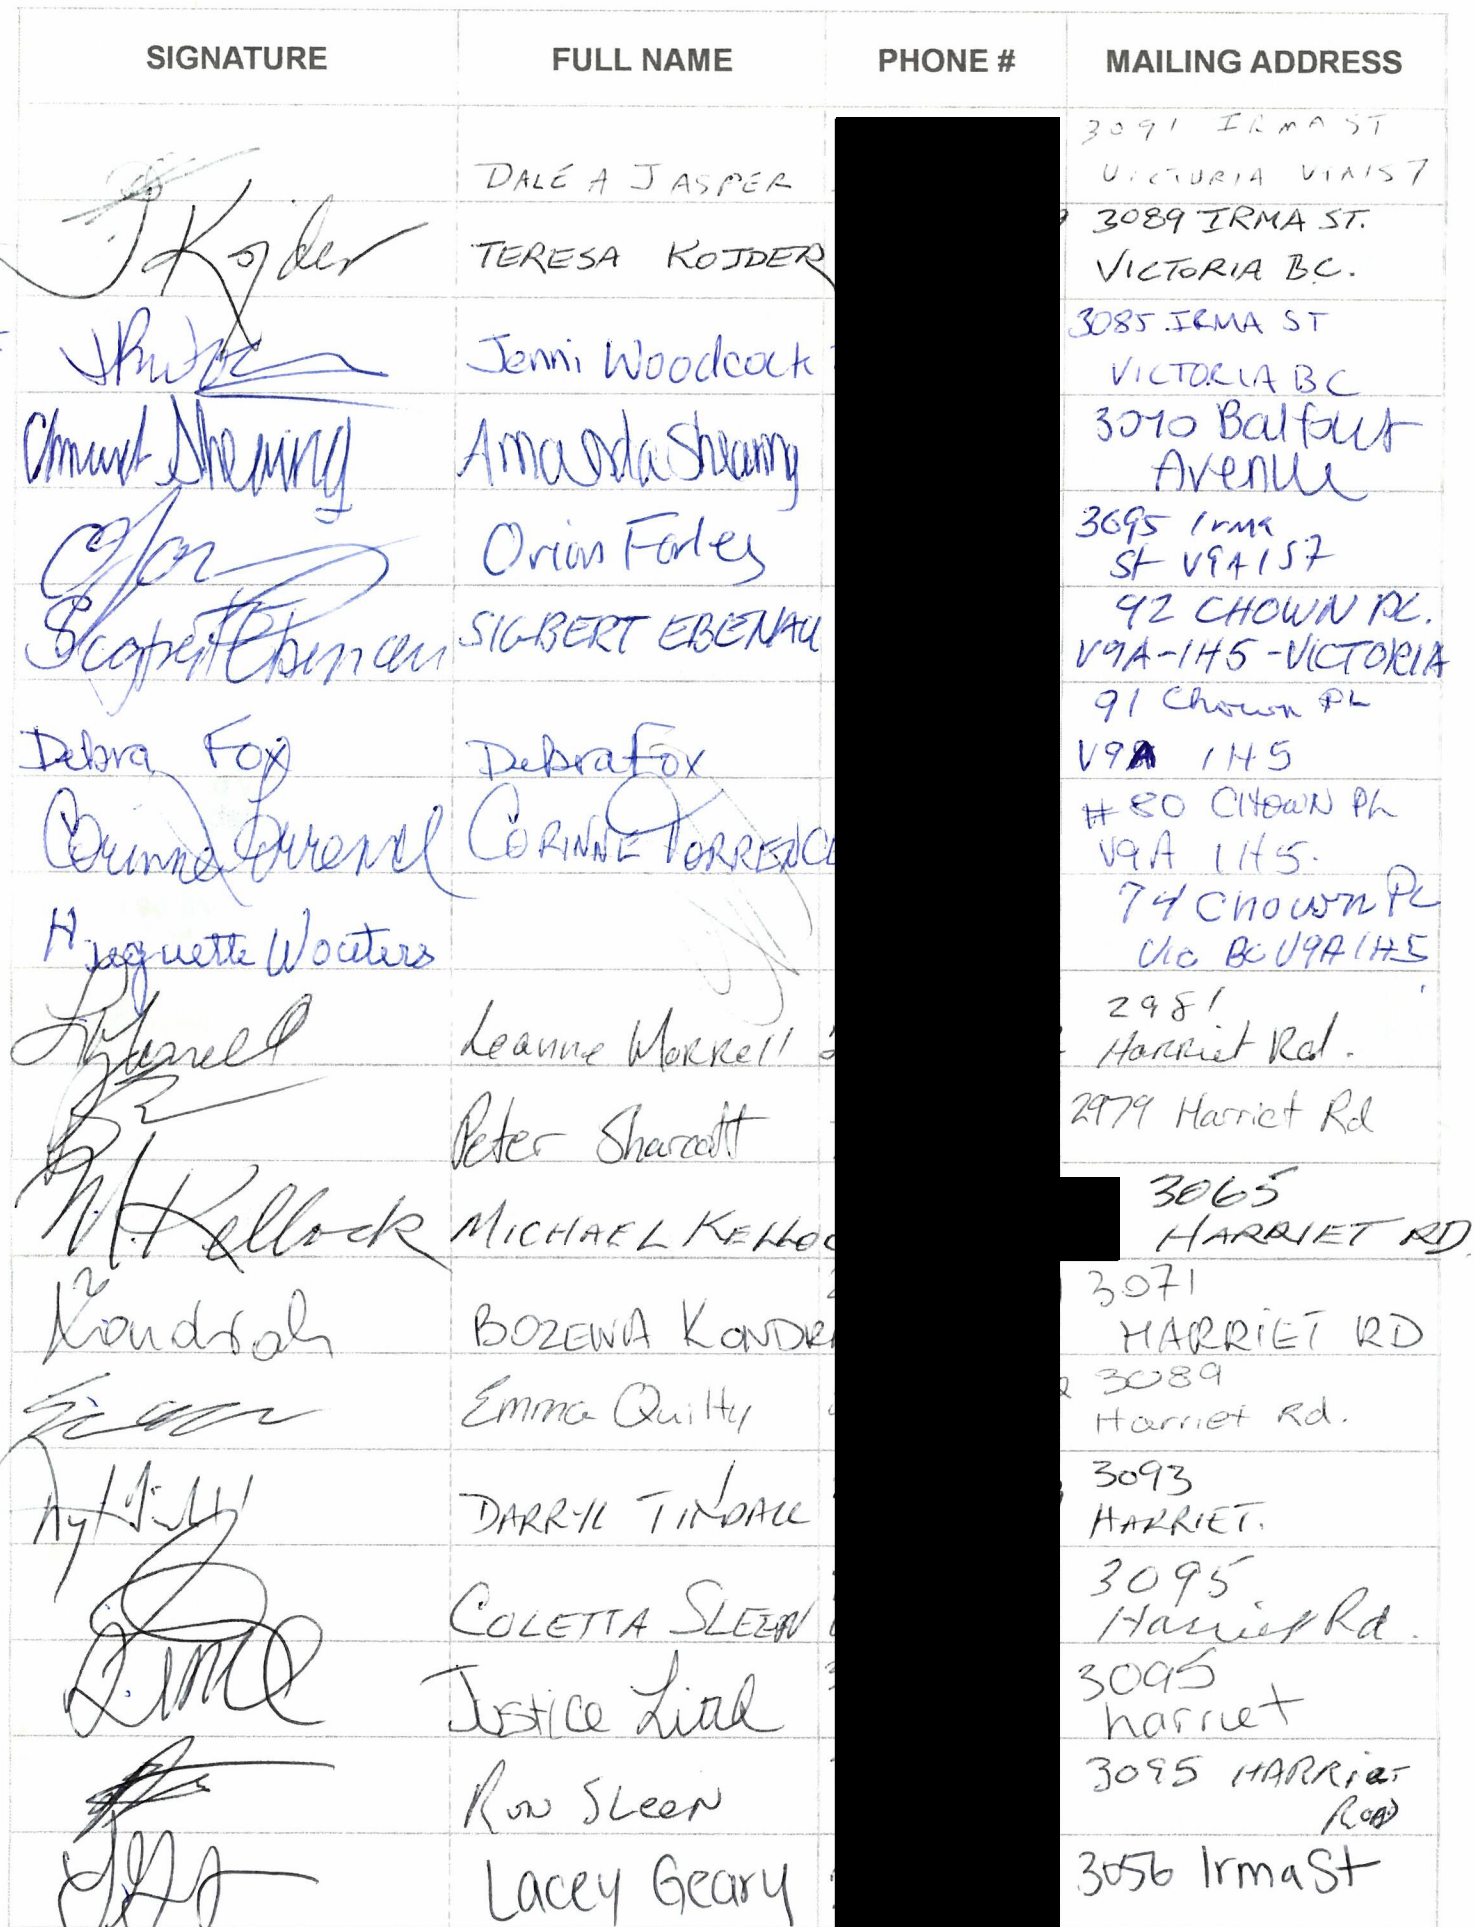 SIGNATURE FULL NAME PHONE # MAILING ADDRESS
3091 IRMA ST
DALE A JASPER VICTORIA V1A1S7
J Kojder TERESA KOJDER 3089 IRMA ST.
VICTORIA BC.
Jenni Woodcock 3085 IRMA ST
VICTORIA BC
Shearing Amanda Shearing 3070 Balfour
Avenue
Orion Farley 3095 Irma
St V9A1S7
Sigbert Ebenau SIGBERT EBENAU 92 CHOWN PL.
V9A-1H5-VICTORIA
Debra Fox Debra Fox 91 Chown PL
V9A 1H5
Corinne Torrence CORINNE TORRENCE #80 CHOWN PL
V9A 1H5.
Huguette Wouters 74 Chown PL
Vic BC V9A1H5
Leanne Morrell 2981
Harriet Rd.
Peter 2979 Harriet Rd
M. Kellock MICHAEL KELLOC 3065
HARRIET RD.
Kondrah BOZENA KONDR 3071
HARRIET RD
Emma Quilty 3089
Harriet Rd.
DARRYL TINDALL 3093
HARRIET.
COLETTA SLEEN 3095
Harriet Rd.
Justice 3095
harriet
RON SLEEN 3095 HARRIET
ROAD
Lacey Geary 3056 Irma St